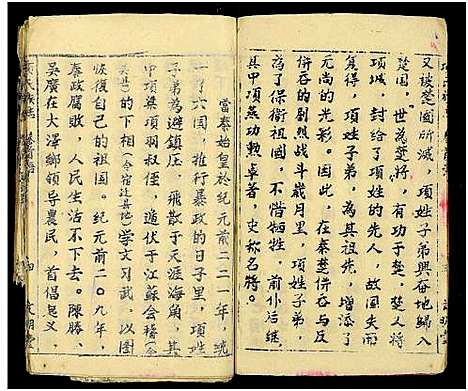 又被楚國所滅，項姓子弟興奮地歸入
楚国，世為楚將，有功于楚，楚人將
項城，封给了項姓的先人，故国失而
复得，項姓子弟，為其祖先，增添了
无尚的光彩。因此，在秦楚併吞与反
併吞的剧烈战斗岁月里，項姓子弟，
為了保衛祖國，不惜牺牲，前仆后继，
其中項燕功勲卓著，史称名將。
當秦始皇於纪元前二二一年，统
一了六国，推行暴政的日子里，項姓
子弟為避鎮圧，飛散于天涯海角，其
中項梁項羽叔侄，逃伏于江蘇会稽（今
吴县）下相（今宿迁县地）学文习武，以图
恢復自己的祖国。纪元前二〇九年，
秦政腐敗，人民生活不下去。陳勝、
吳廣在大澤鄉领導農民，首倡起义，